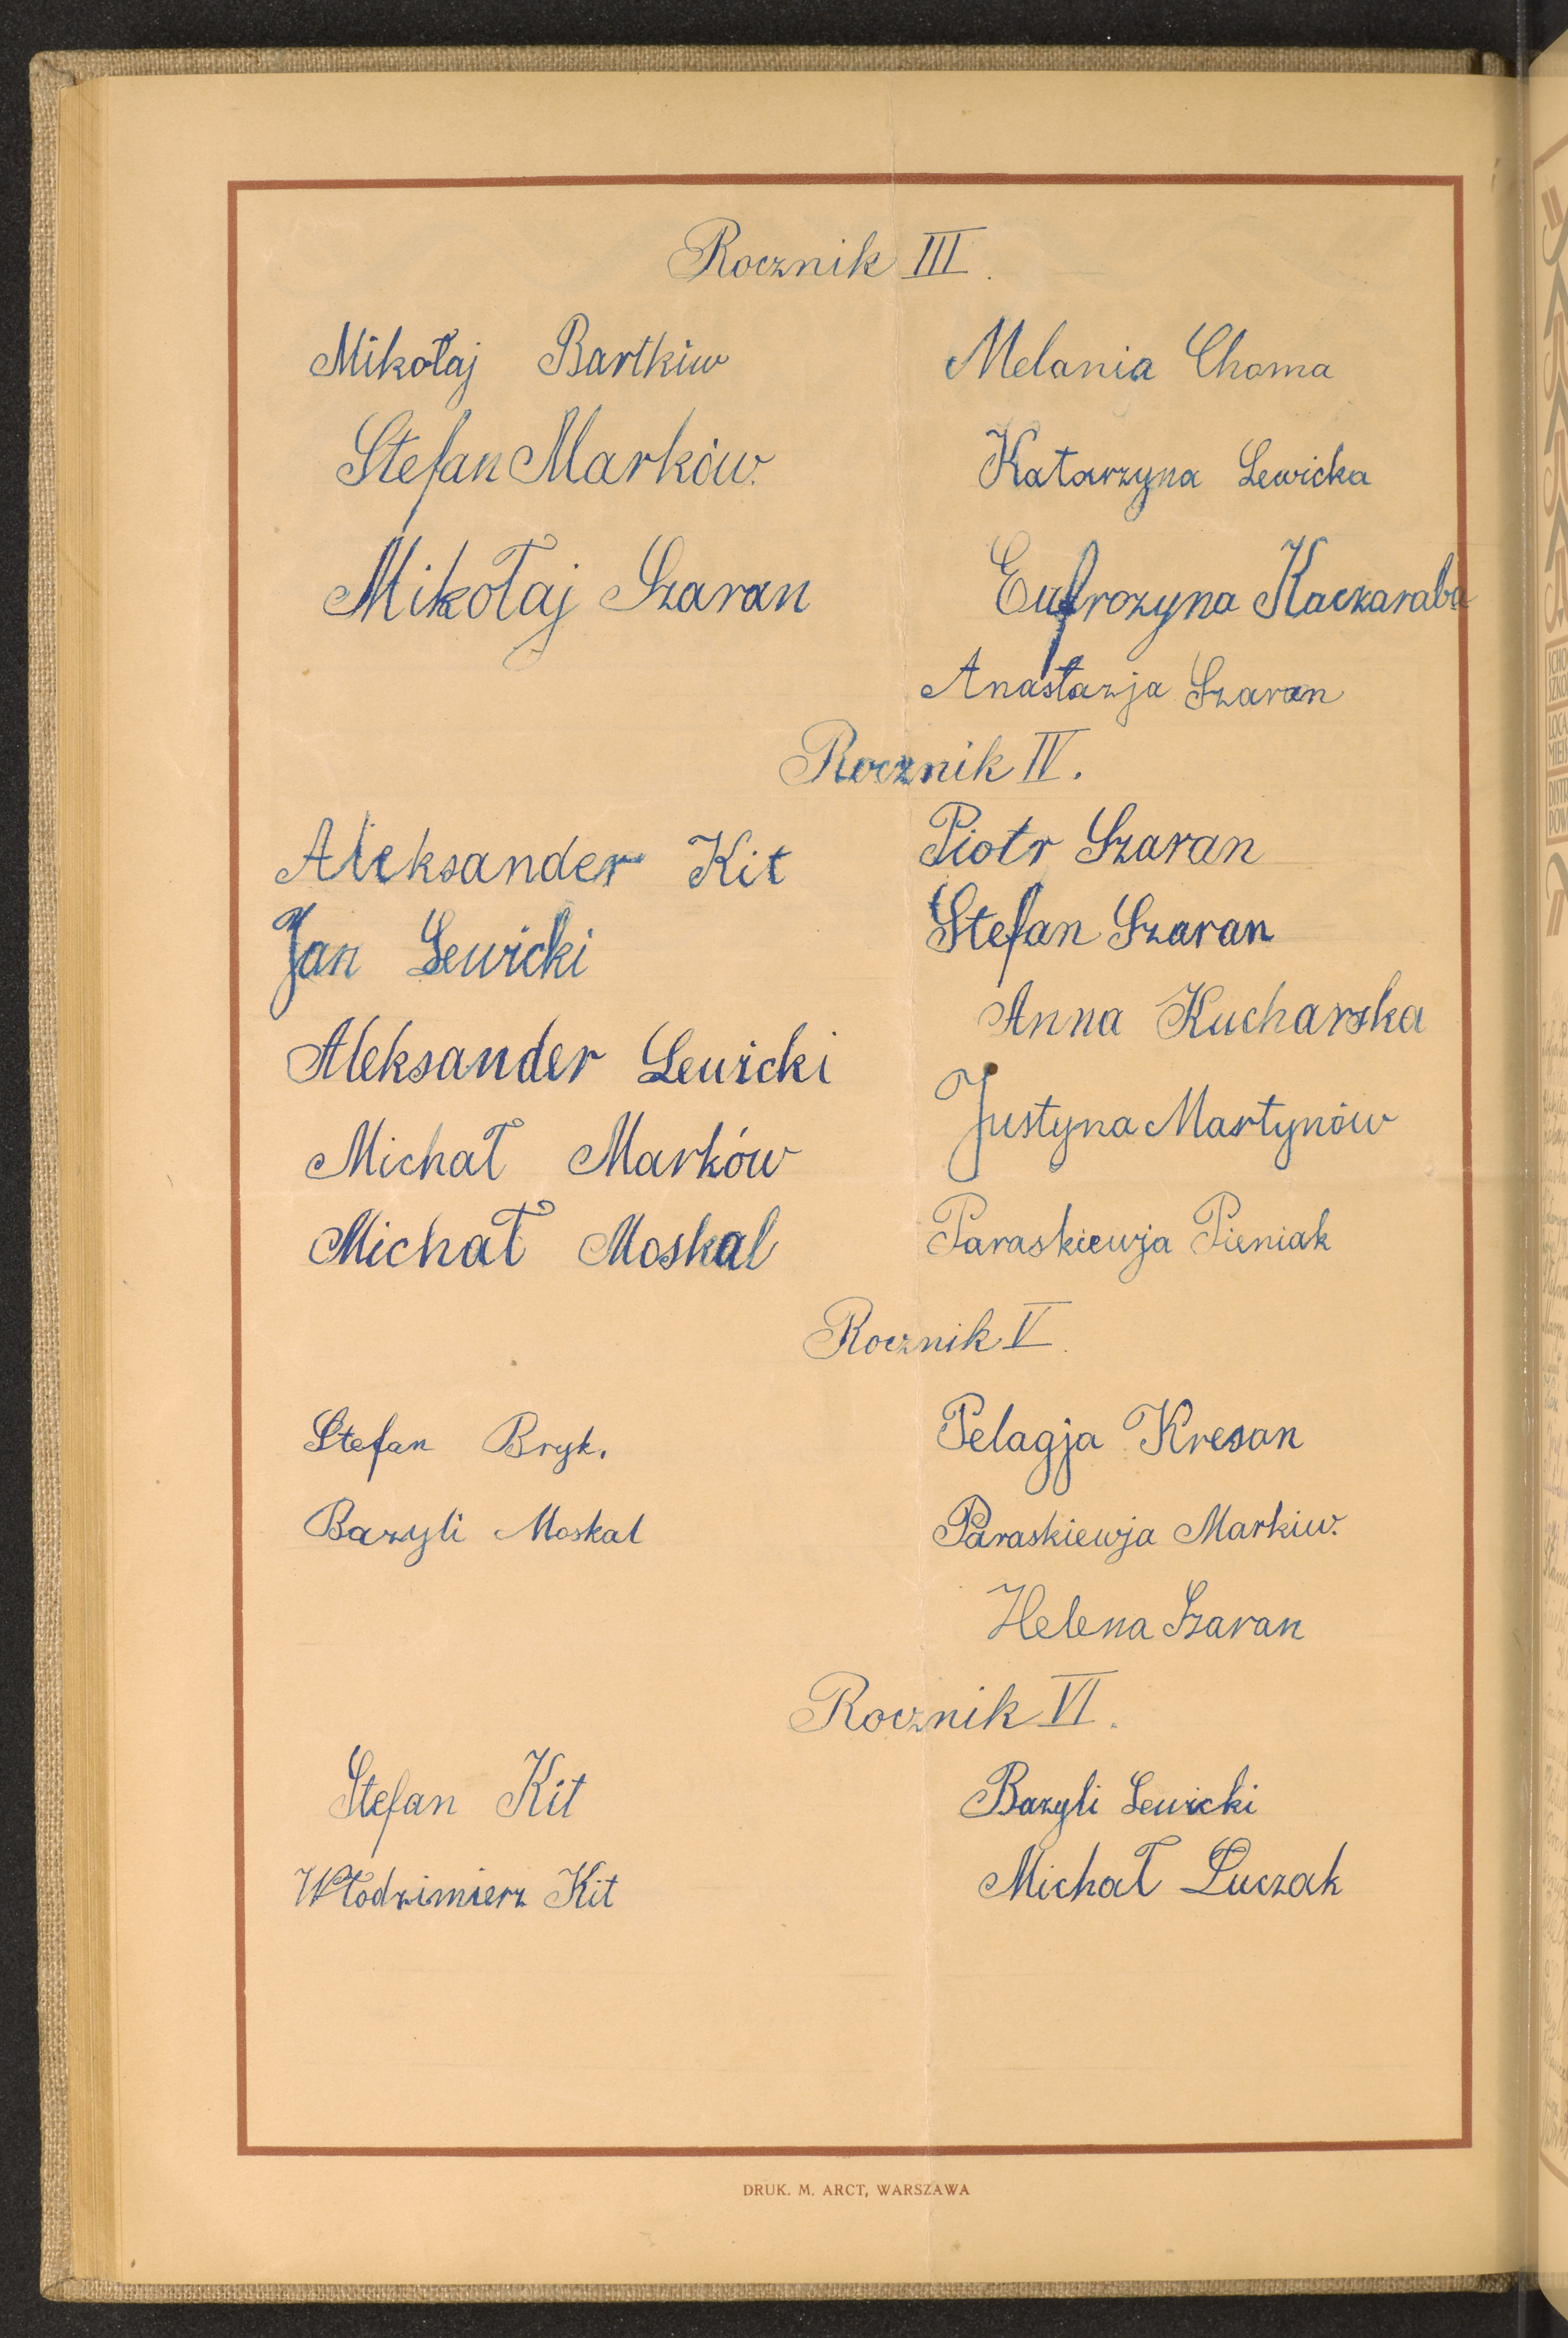 Rocznik III.
Mikołaj Bartkiw
Stefan Marków.
Mikołaj Szaran
Melania Choma
Katarzyna Lewicka
Eufrozyna Kaczaraba
Anastazja Szaran
Rocznik IV.
Aleksander Kit
Jan Lewicki
Aleksander Lewicki
Michał Marków
Michał Moskal
Piotr Szaran
Stefan Szaran
Anna Kucharska
Justyna Martynów
Paraskiewja Pieniak
Rocznik V.
Stefan Bryk.
Bazyli Moskal
Pelagja Kresan
Paraskiewja Markiw.
Helena Szaran
Rocznik VI.
Stefan Kit
Włodzimierz Kit
Bazyli Lewicki
Michał Łuczak
DRUK. M. ARCT, WARSZAWA